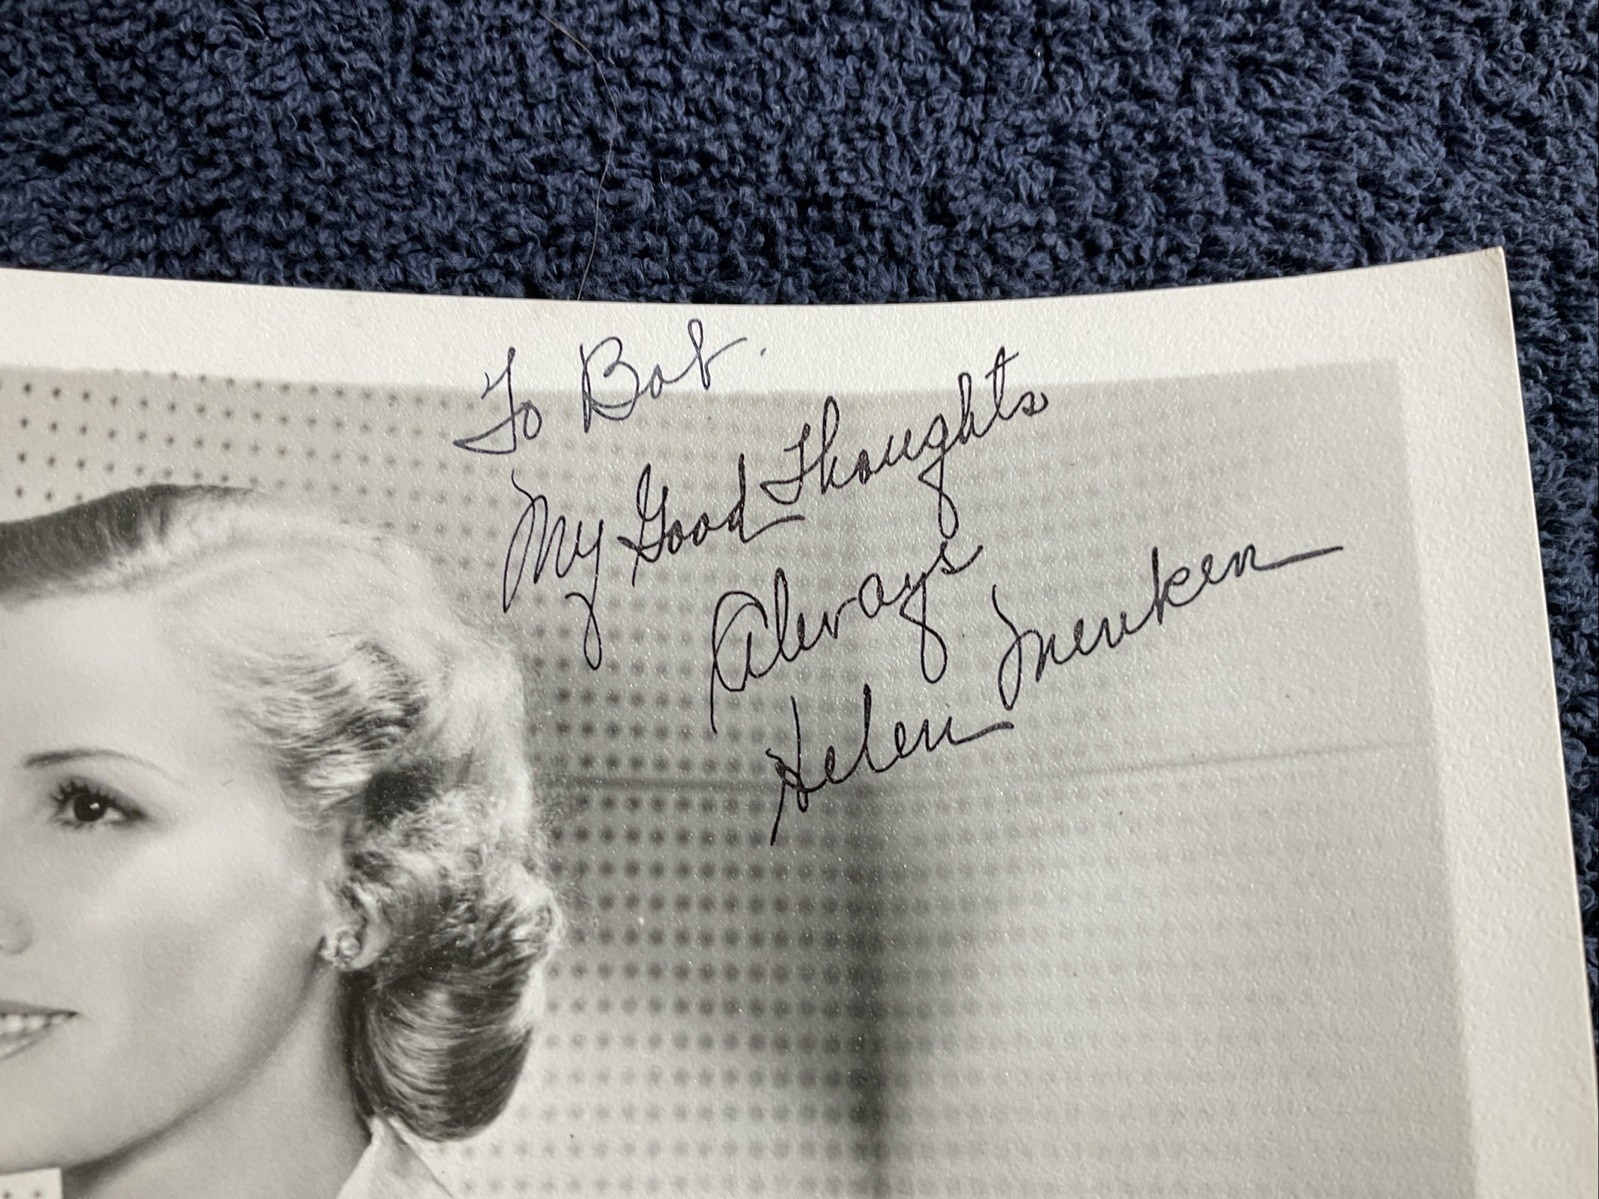 To Bob.
My Good Thoughts
Always
Helen Menken